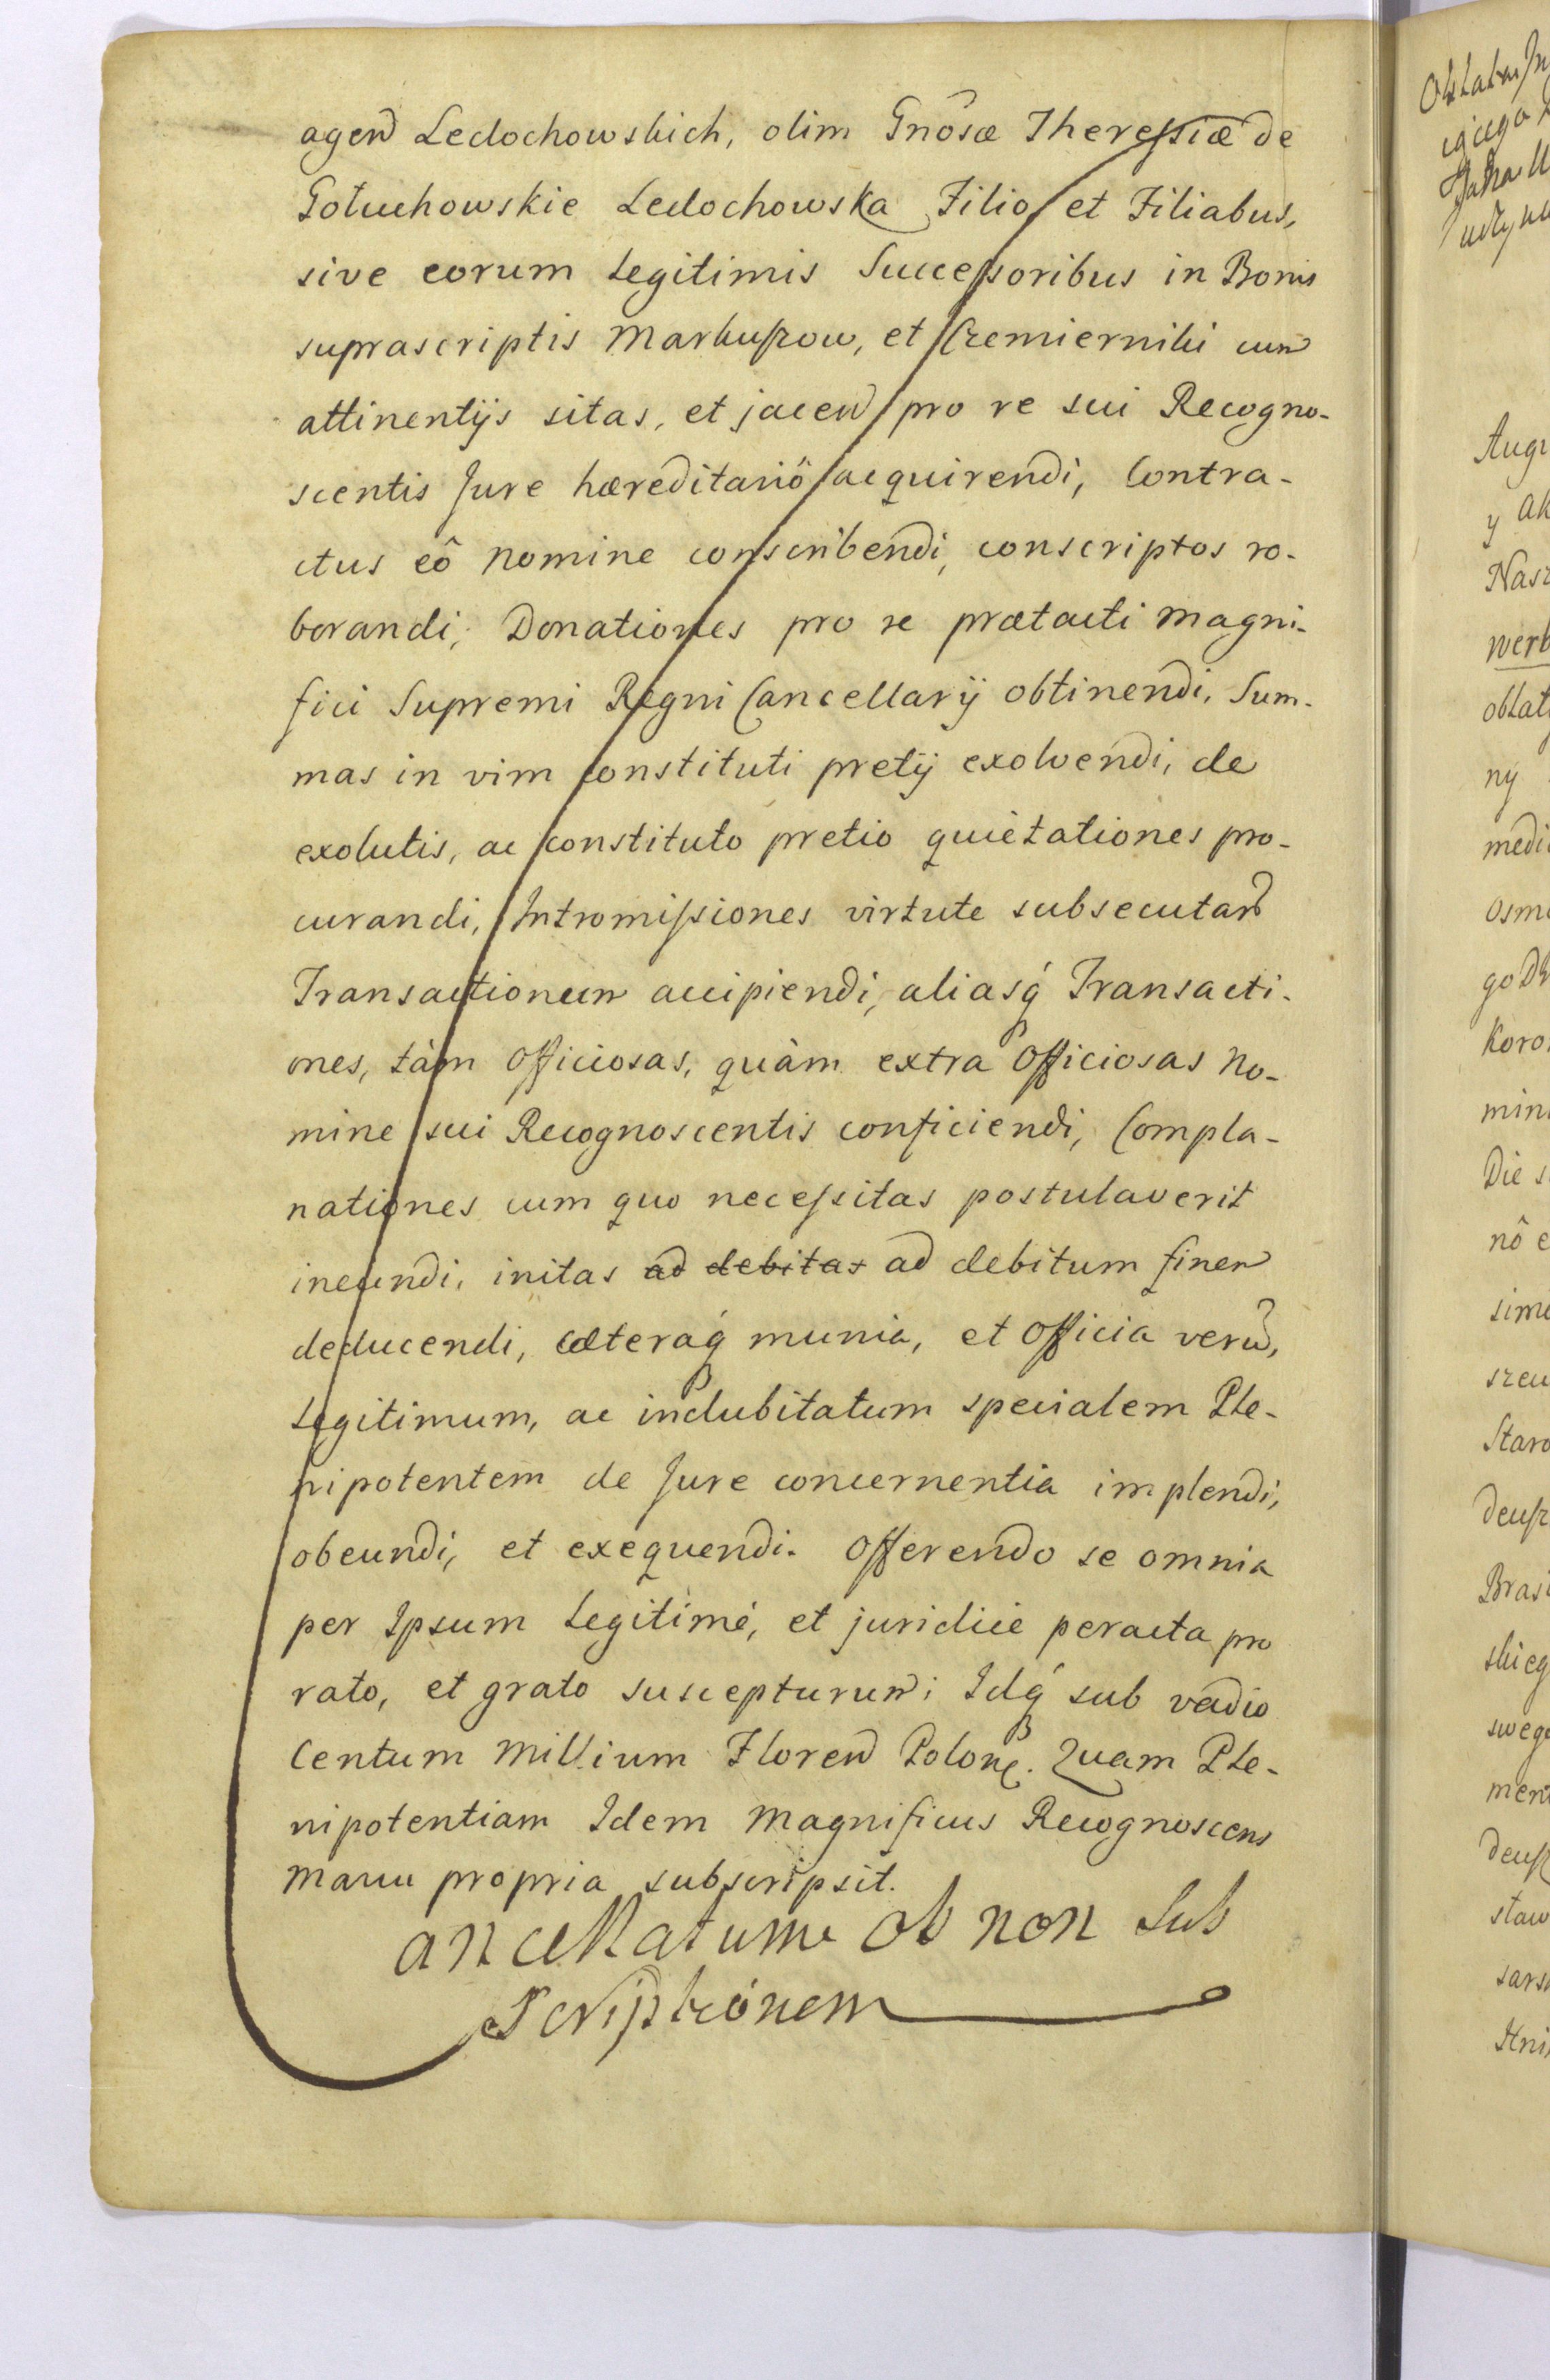 agen Ledochowskich, olim Gnosæ Theressiæ de
Gołuchowskie Ledochowska Filio et Filiabus,
sive eorum Legitimis Successoribus in Bonis
suprascriptis Markuszow, et Krzemiernihi cum
attinentijs sitas, et jacen pro re sui Recogno-
scentis Jure hæreditariô acquirendi, Contra-
ctus eô nomine conscribendi, conscriptos ro-
borandi, Donationes pro se prætacti Magni-
fici Supremi Regni Cancellarij obtinendi, Sum-
mas in vim constituti pretij exolvendi, de
exolutis, ac constituto pretio quietationes pro-
curandi, Intromissiones virtute subsecutar
Transactionum accipiendi, aliasq́ Transacti-
ones, tàm officiosas, quàm extra officiosas no-
mine sui Recognoscentis conficiendi, Compla-
nationes cum quo necessitas postulaverit
ineundi, initas ad debitas ad debitum finem
deducendi, cæteraq́ munia, et officia verũ,
Legitimum, ac indubitatum specialem Ple-
nipotentem de Jure concernentia implendi,
obeundi, et exequendi. Offerendo se omnia
per Ipsum Legitimè, et juridicè peracta pro
rato, et grato suscepturum; Idq́ sub vadio
Centum Millium Floren Polon. Quam Ple-
nipotentiam Idem Magnificus Recognoscens
manu propria subscripsit.
Cancellatum ob non Sub
scriptionem